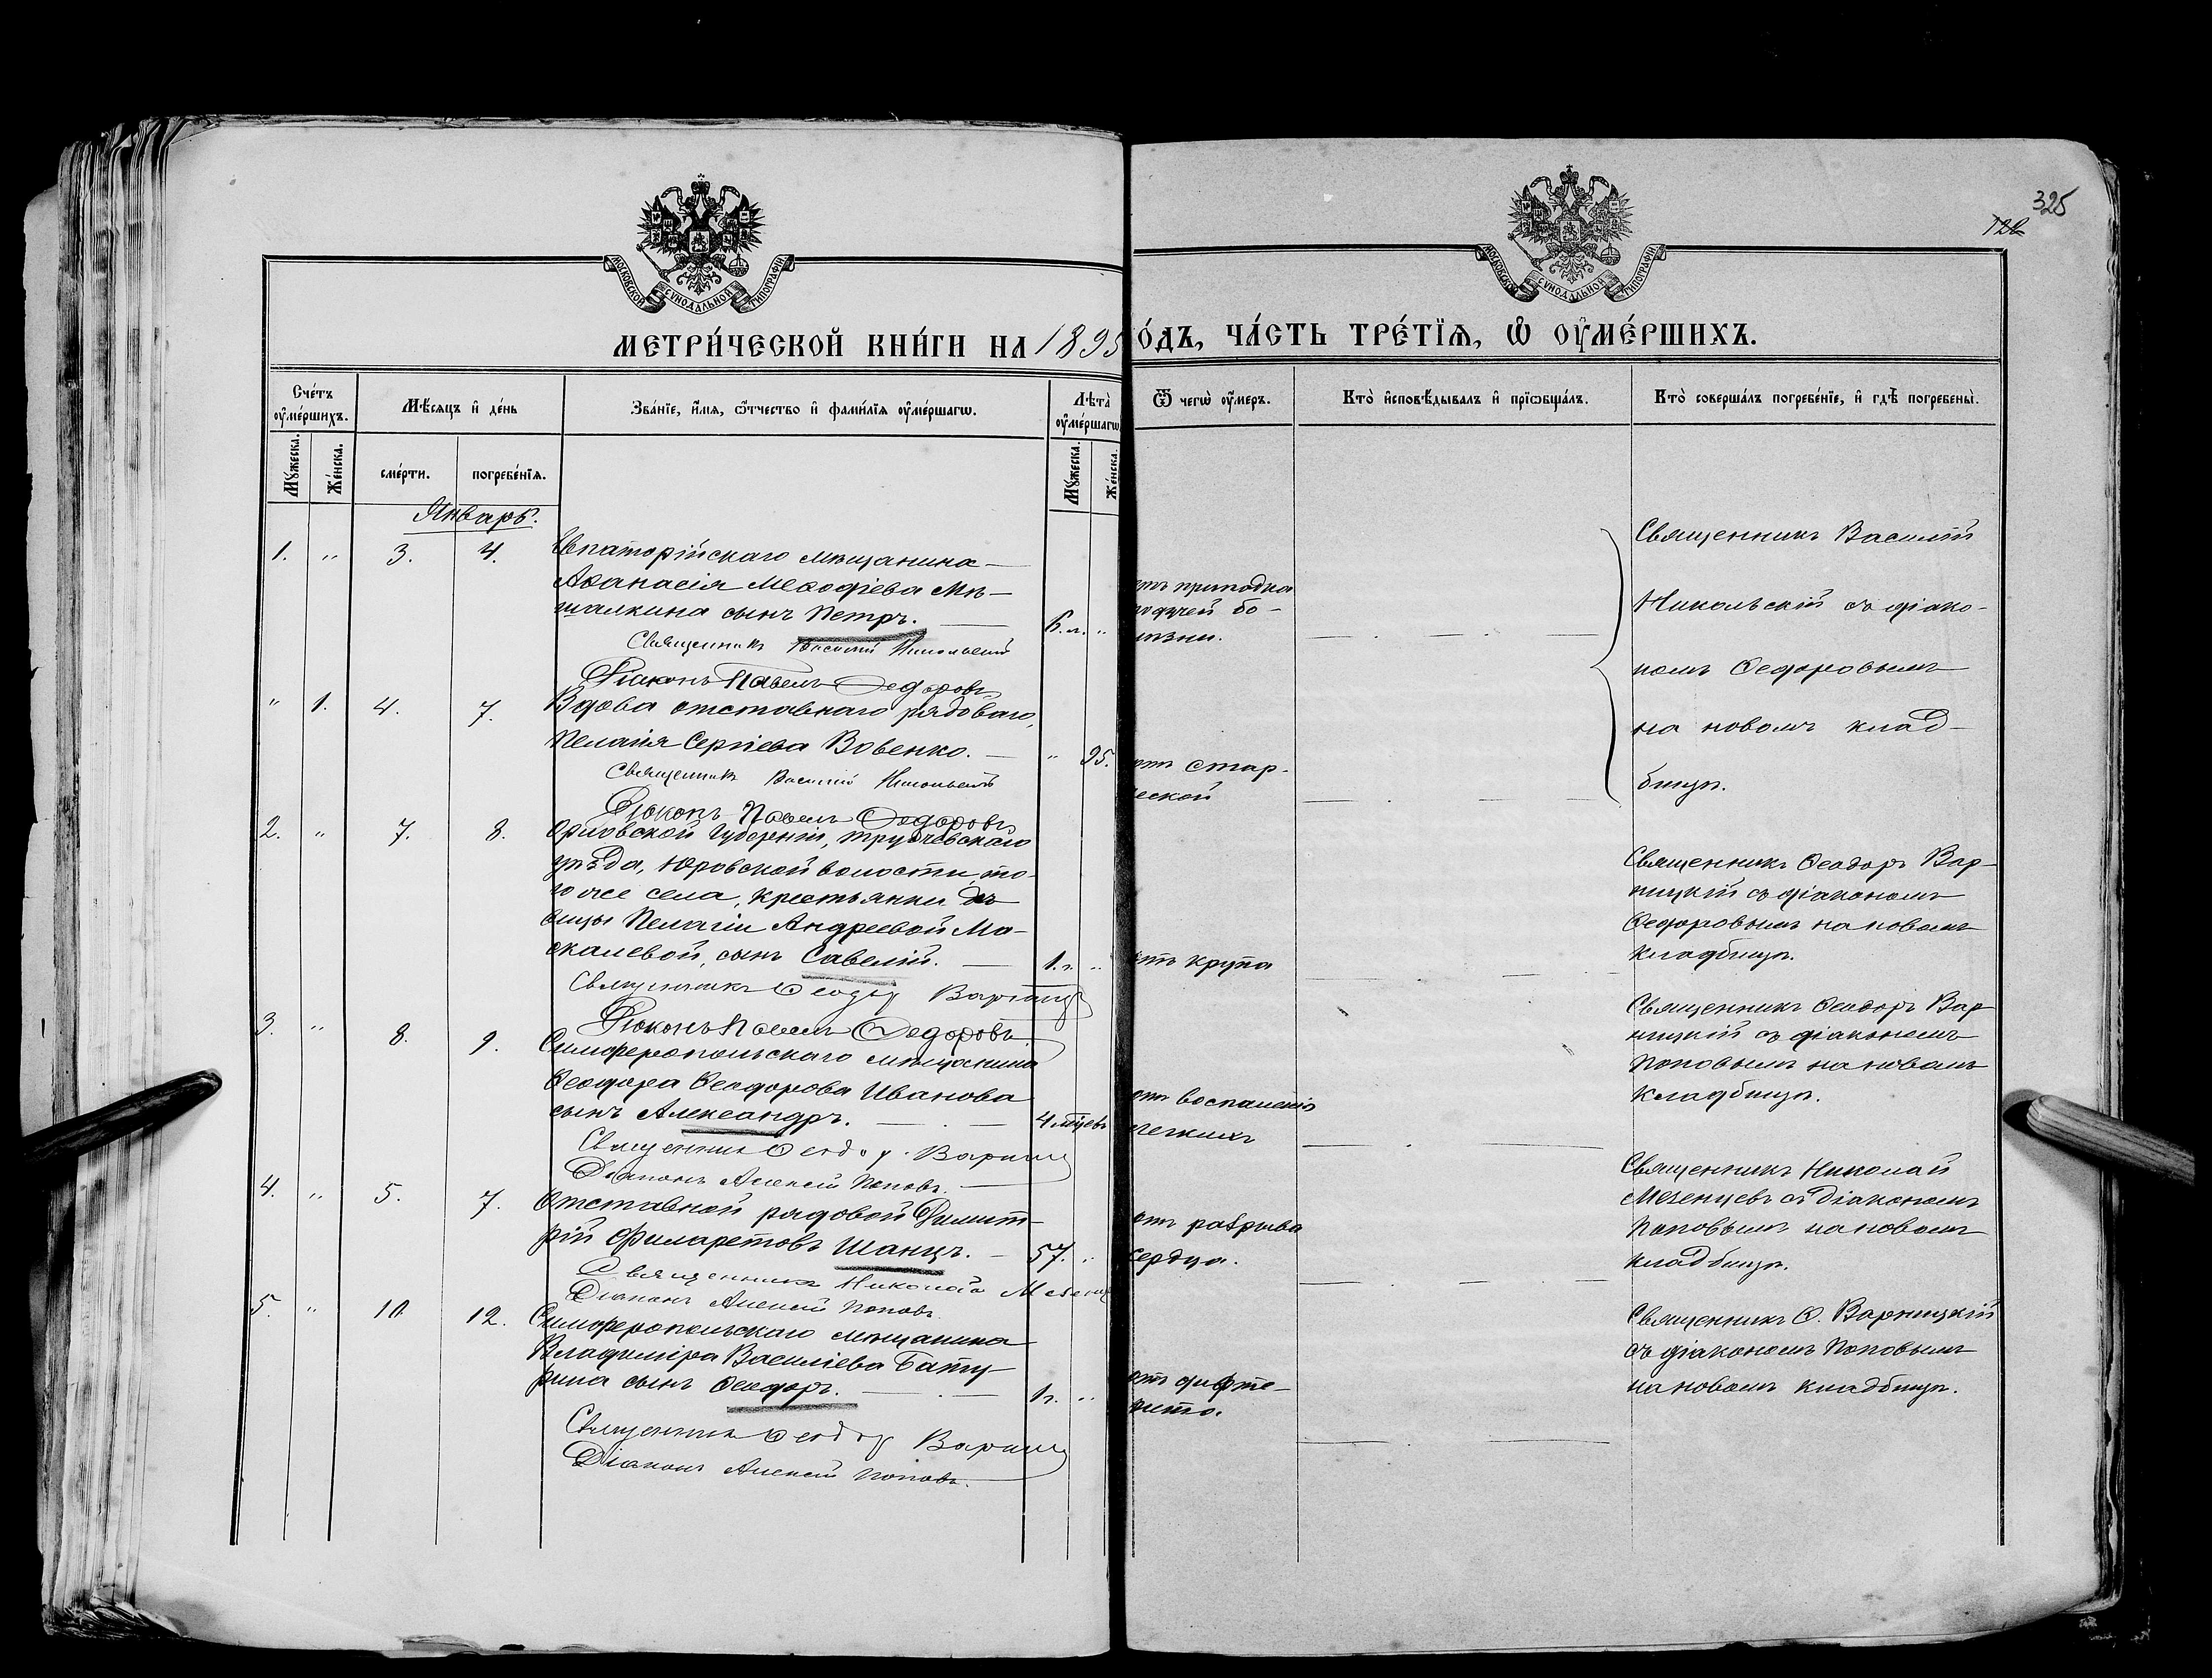 325
122
МОСКОВСКОЙ СУНОДАЛЬНОЙ ТИПОГРАФІИ
МОСКОВСКОЙ СУНОДАЛЬНОЙ ТИПОГРАФІИ
МЕТРИ́ЧЕСКОЙ КНИ́ГИ НА 1895
О́ДЪ, ЧА́СТЬ ТРЕ́ТЇѦ, Ѡ҆ ОУ҆МЕ́РШИХЪ.
Сче́тъ оу҆ме́ршихъ.
Мѣ́сяцъ и҆ де́нь
Зва́нїе, и҆́мѧ, ѻ҆́тчество и҆ фами́лїѧ оу҆ме́ршагѡ.
Лѣта̀ оу҆ме́ршагѡ
Ѿ чегѡ̀ оу҆́меръ.
Кто̀ и҆сповѣ́дывалъ и҆ прїѡбща́лъ.
Кто̀ соверша́лъ погребе́нїе, и҆ гдѣ̀ погребены̀.
Мꙋ́жеска.
Же́нска.
сме́рти.
погребе́нїѧ.
Мꙋ́жеска.
Же́нска.
Январь.
1. " 3. 4. Евпаторійскаго мѣщанина
Аѳанасія Меѳодіева Мѣ-
шалкина сынъ Петръ. 6.л. "
Священникъ Василій Никольскій
Діаконъ Павелъ Ѳедоровъ
отъ припадка
падучей бо-
лѣзни.
Священникъ Василій
Никольскій съ діако-
номъ Ѳедоровымъ
на новомъ клад-
бищѣ.
" 1. 4. 7. Вдова отставнаго рядоваго,
Пелагія Сергіева Вовенко. " 95.
Священникъ Василій Никольскій
Діаконъ Павелъ Ѳедоровъ
отъ стар-
ческой
2. " 7. 8. Орловской губерніи, Трубчевскаго
уѣзда, Юровской волости, то-
го же села, крестьянки дѣ-
вицы Пелагіи Андреевой Мо-
скалевой, сынъ Савелій. 1.г. "
Священникъ Ѳеодоръ Варницк
Діаконъ Павелъ Ѳедоровъ.
отъ крупа
Священникъ Ѳеодоръ Вар-
ницкій съ діакономъ
Ѳедоровымъ на новомъ
кладбищѣ.
3. " 8. 9. Симферопольскаго мѣщанина
Ѳеодора Ѳеодорова Иванова
сынъ Александръ. 4 мѣцевъ
Священникъ Ѳеодоръ Варниц
Діаконъ Алексій Поповъ.
отъ воспаленія
легкихъ
Священникъ Ѳеодоръ Вар
ницкій съ діакономъ
Поповымъ на новомъ
кладбищѣ.
4. " 5. 7. Отставной рядовой Димит-
рій Филаретовъ Шанцъ. 57. "
Священникъ Николай Мезенц
Діаконъ Алексій Поповъ
отъ разрыва
сердца.
Священникъ Николай
Мезенцевъ съ діакономъ
Поповымъ на новомъ
кладбищѣ.
5. " 10 12. Симферопольскаго мѣщанина
Владиміра Василіева Бату-
рина сынъ Ѳеодоръ. 1г. "
Священникъ Ѳеодоръ Варниц
Діаконъ Алексій Поповъ.
отъ дифте-
рита.
Священникъ Ѳ. Варницкій
съ діакономъ Поповымъ
на новомъ кладбищѣ.